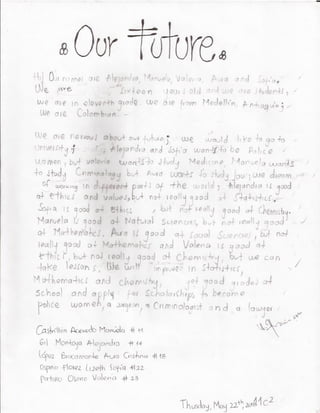 Our future
Hi! Our names are Alejandra, Manuela, Valeria, Aura and Sofia.
We are sixteen years old and we are students,
we are in eleventh grade. We are from Medellín, Antioquia;
We are Colombian.
We are nervous about our future; we would like to go to
university; Alejandra and Sofia want to be Police
women, but Valeria wants to study Medicine, Manuela wants
to study Criminology but Aura wants to study law; we dream
of working in different parts of the world; Alejandra is good
at ethics and values, but not really good at Statistics,
Sofia is good at Ethics, but not really good at Chemistry.
Manuela is good at Natural Sciences, but not really good
at Mathematics, Aura is good at Social Sciences, but not
really good at Mathematics and Valeria is good at
ethic's, but not really good at Chemistry, but we can
take lesson's, We will improve in Statistics,
Mathematics and chemistry, get good grades at
school and apply for Scholarships to become
police women, a surgeon, a Criminologist and a lawyer.
Castrillón Acevedo Manuela # 11
Gil Montoya Alejandra # 14
López Aura Cristina # 18
Ospina Florez Lizeth Sofía #22
Valeria # 23
Thursday, May 22th,
11C2